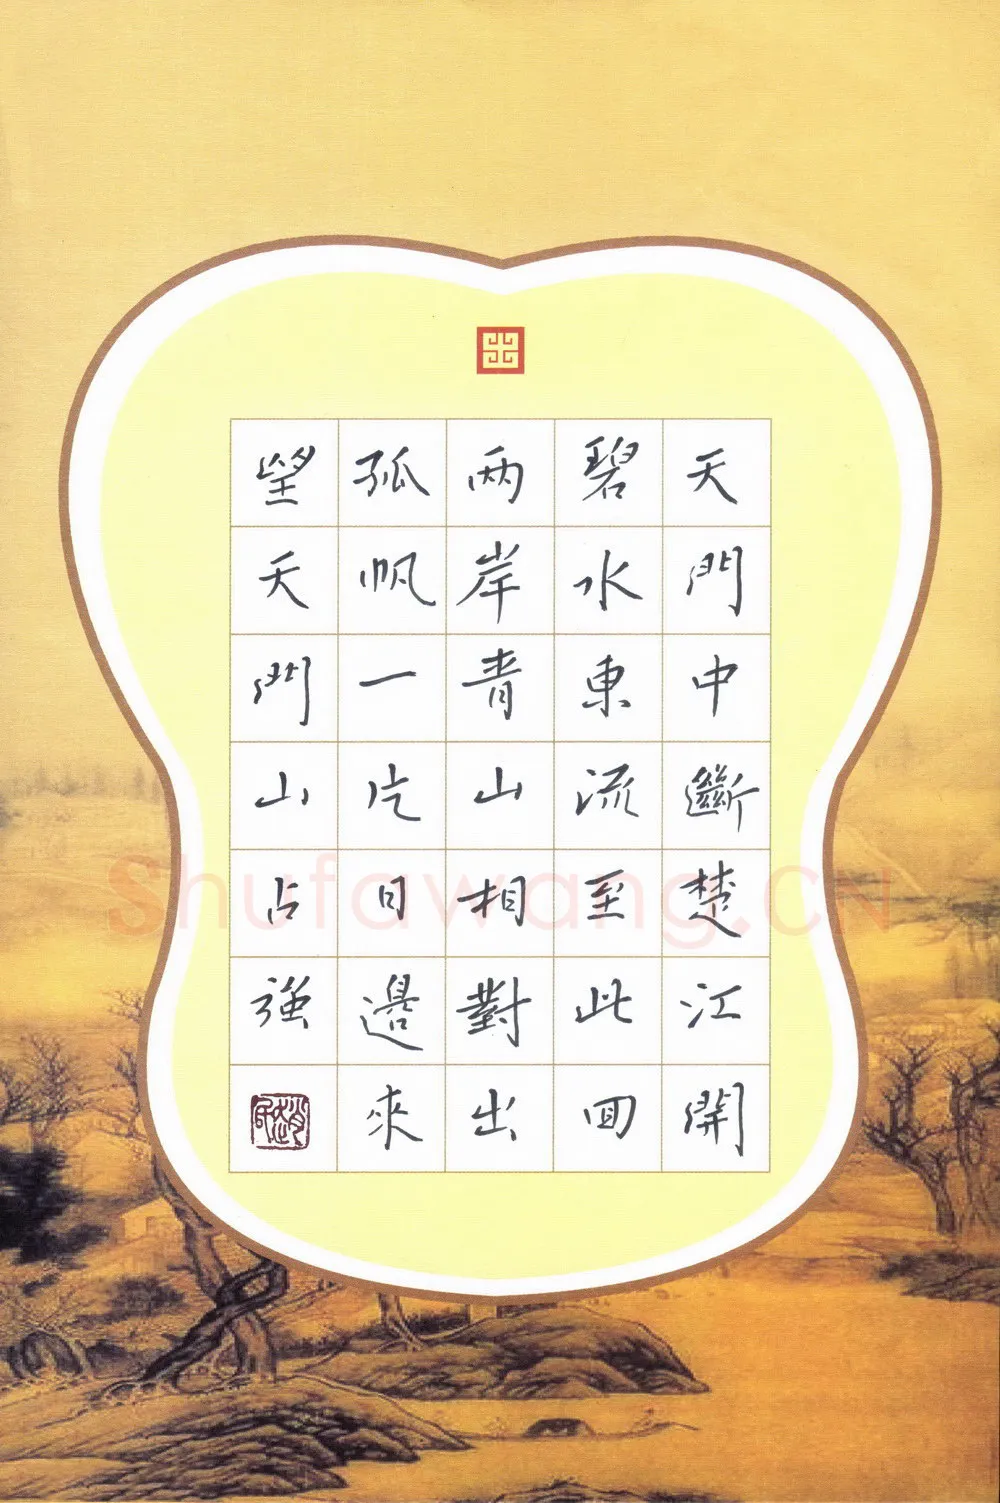 天門中斷楚江開
碧水東流至此回
两岸青山相對出
孤帆一片日邊來
望天門山占強
Shufawang.CN